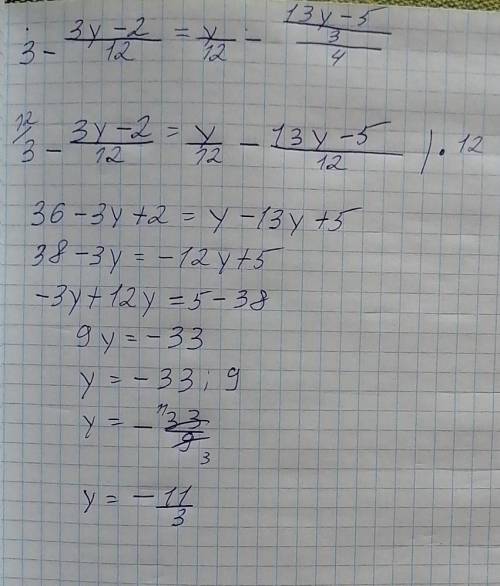 3 - (3y-2)/12 = y/12 - (13y-5)/(3/4)
¹²/3 - (3y-2)/12 = y/12 - (13y-5)/12 ) · 12
36 - 3y + 2 = y - 13y + 5
38 - 3y = -12y + 5
-3y + 12y = 5 - 38
9y = -33
y = -33 : 9
y = - ¹¹33/9₃
y = - 11/3